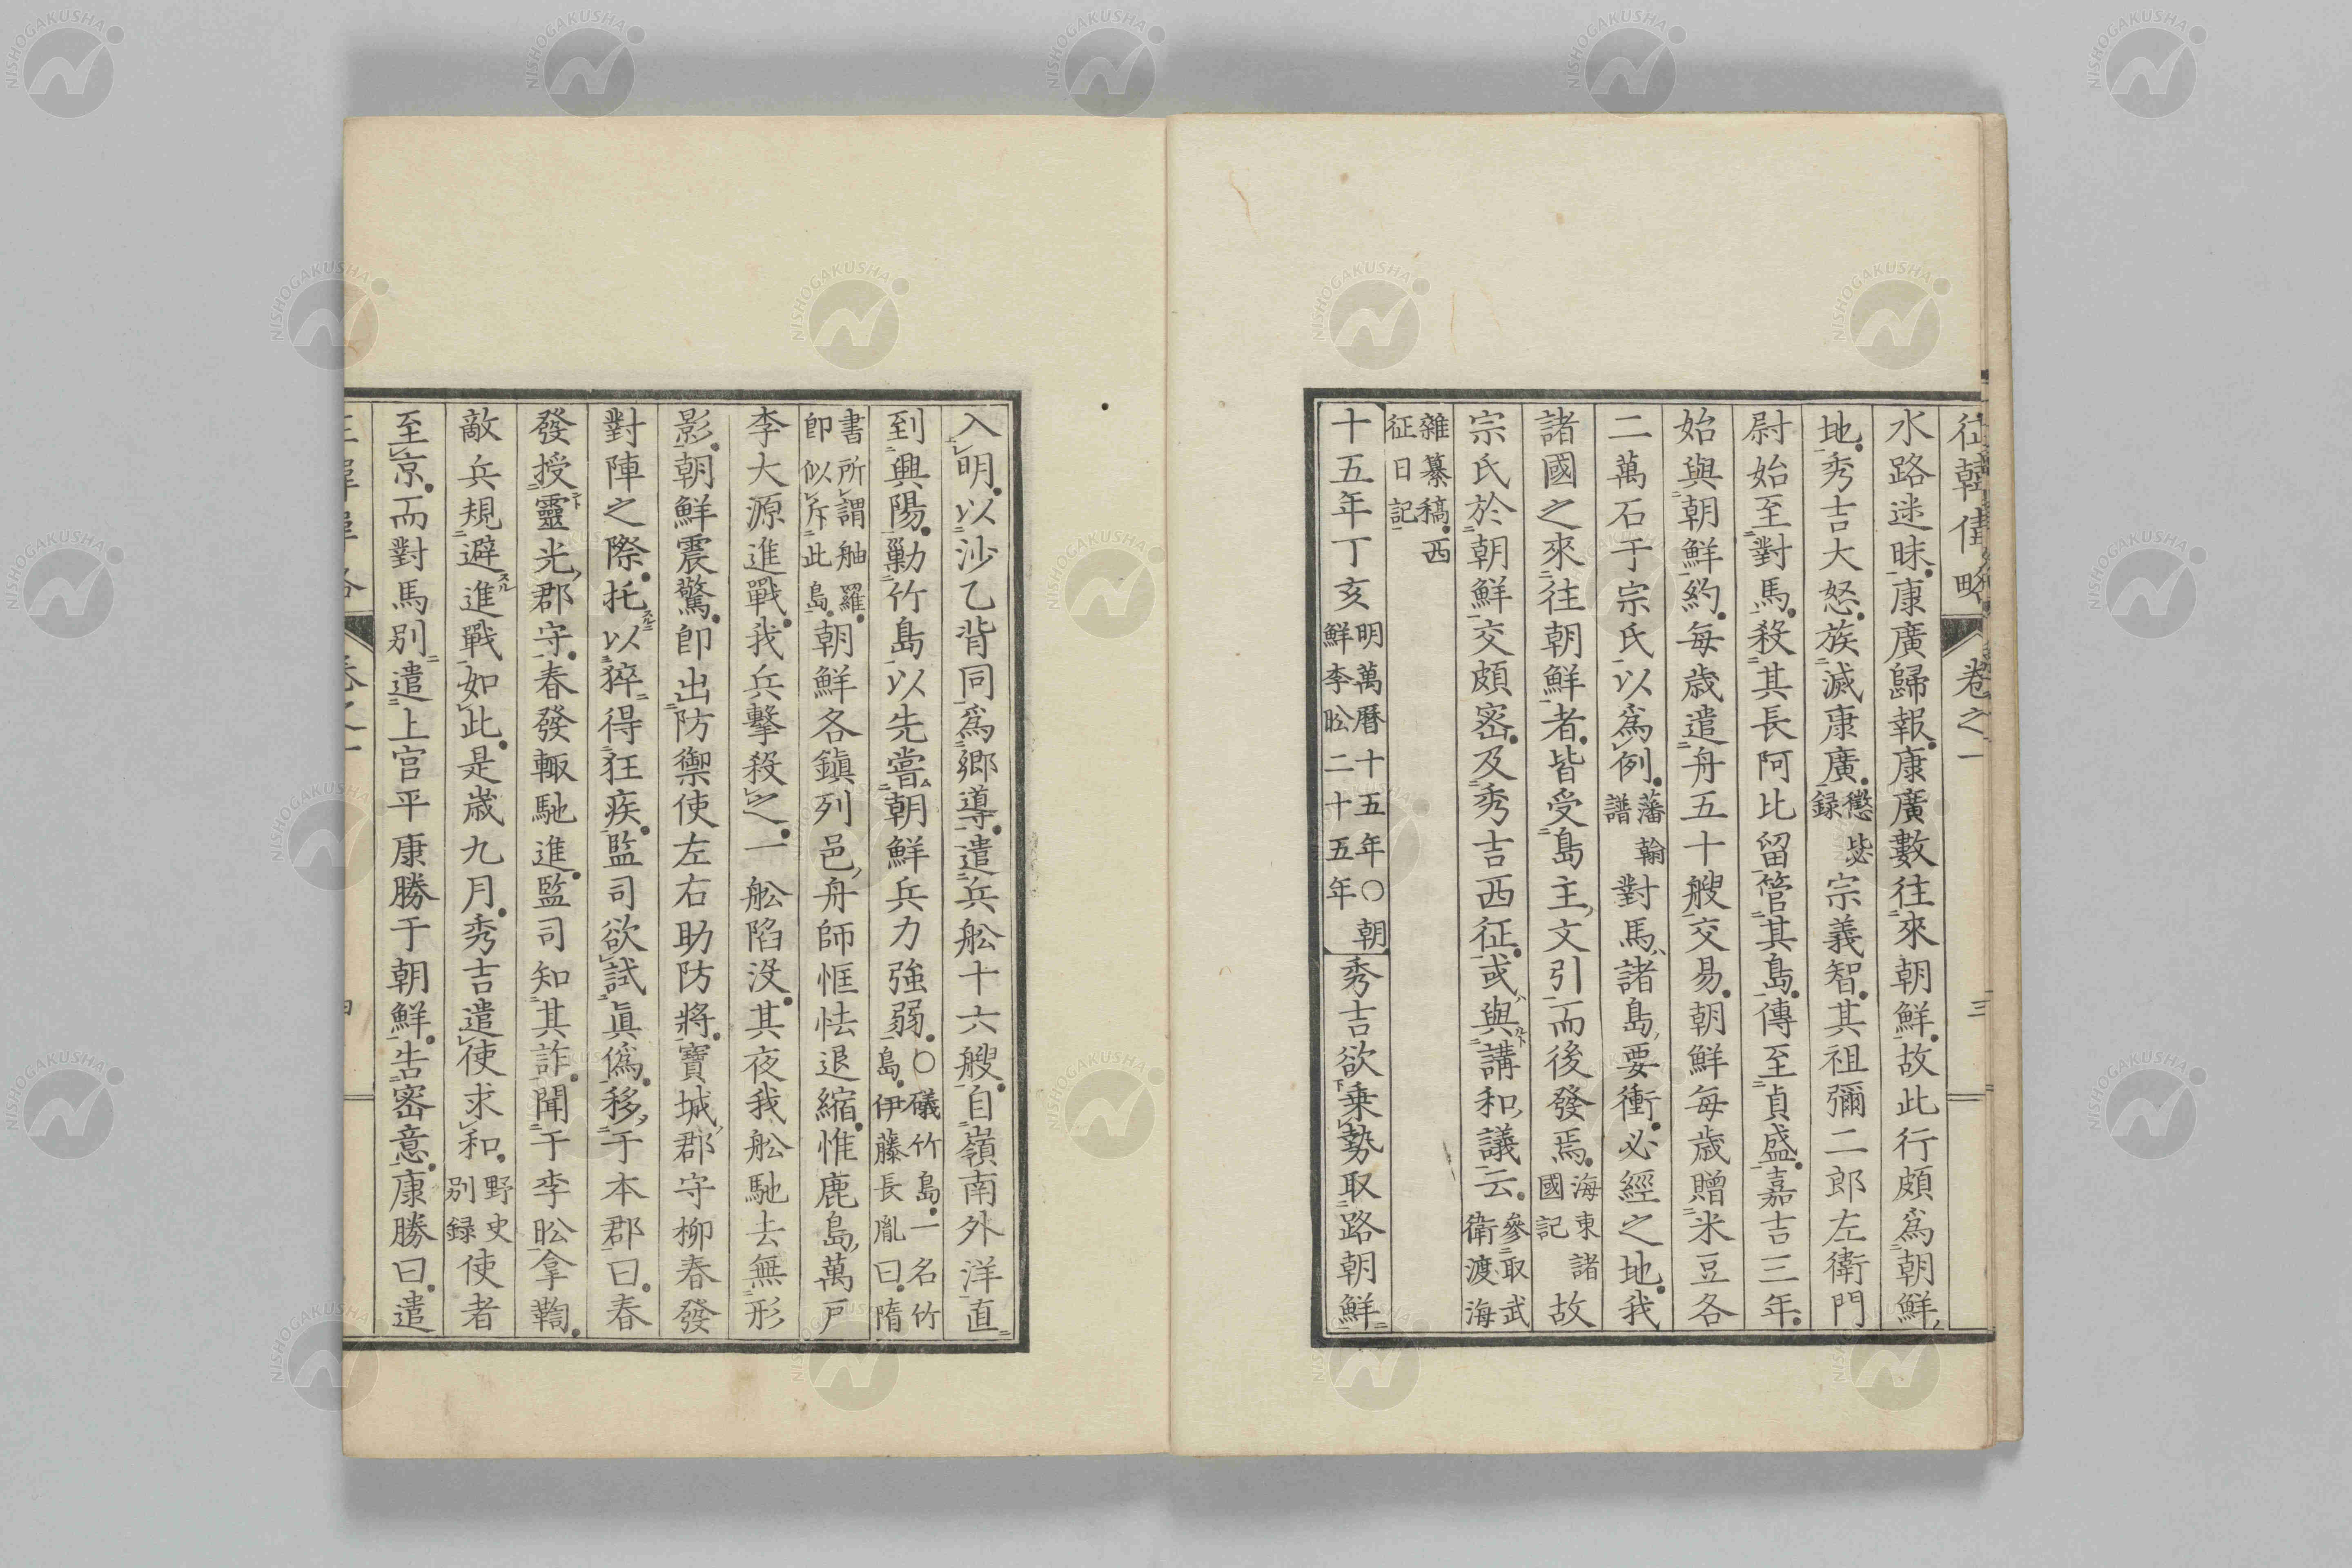 征韓偉略 卷之一 三
水路迷昧。康廣歸報。康廣數往來朝鮮。故此行頗爲朝鮮
地。秀吉大怒。族滅康廣。懲毖錄宗義智。其祖彌二郎左衛門
尉始至對馬。殺其長阿比留。管其島。傳至貞盛。嘉吉三年。
始與朝鮮約。每歲遣舟五十艘交易。朝鮮每歲贈米豆各
二萬石于宗氏。以爲例。藩翰譜對馬諸島要衝。必經之地。我
諸國之來往朝鮮者。皆受島主文引而後發焉。海東諸國記故
宗氏於朝鮮交頗密。及秀吉西征。或與講和議云。參取武衛渡海
雜纂稿。西征日記
十五年丁亥明萬曆十五年〇朝鮮李昖二十五年秀吉欲乘勢取路朝鮮
入明。以沙乙背同爲鄉導。遣兵舩十六艘。自嶺南外洋直
到興陽。勦竹島。以先嘗朝鮮兵力強弱。〇礒竹島。一名竹島。伊藤長胤曰。隋
書所謂舳羅。即似斥此島。朝鮮各鎭列邑舟師恇怯退縮。惟鹿島萬戶
李大源進戰。我兵擊殺之。一舩陷沒。其夜我舩馳去無形
影。朝鮮震驚。即出防禦使左右助防將。寶城郡守柳春發
對陣之際。托以猝得狂疾。監司欲試眞僞。移于本郡曰。春
發授靈光郡守。春發輙馳進。監司知其詐。聞于李昖拿鞫。
敵兵規避進戰如此。是歲九月。秀吉遣使求和。野史別錄使者
至京。而對馬別遣上官平康勝于朝鮮。告密意。康勝曰。遣
卷之一